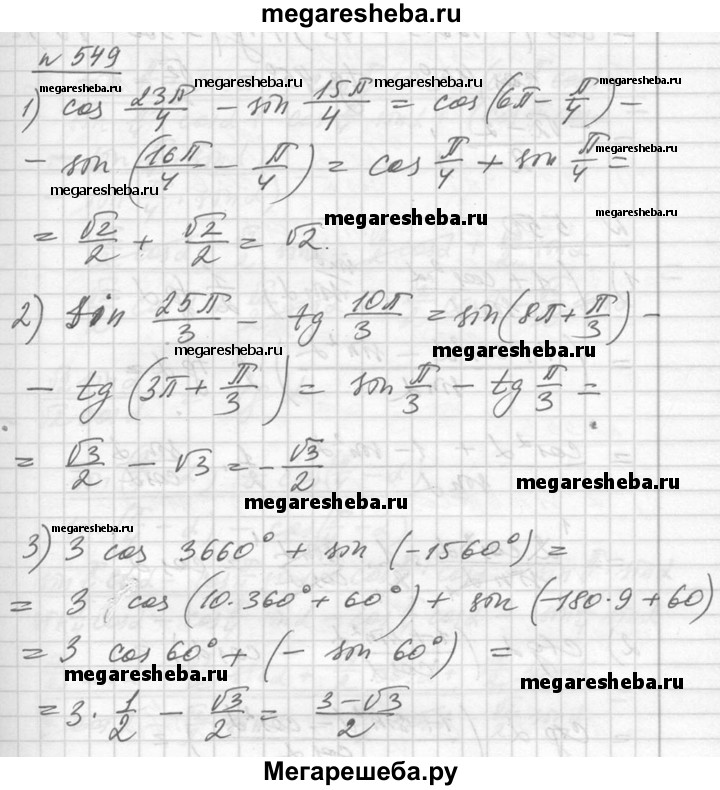 megaresheba.ru
№ 549
megaresheba.ru megaresheba.ru megaresheba.ru
1) cos 23π/4 − sin 15π/4 = cos(6π − π/4) −
− sin(16π/4 − π/4) = cos π/4 + sin π/4 =
megaresheba.ru megaresheba.ru
= √2/2 + √2/2 = √2.
megaresheba.ru megaresheba.ru
2) sin 25π/3 − tg 10π/3 = sin(8π + π/3) −
megaresheba.ru megaresheba.ru
− tg(3π + π/3) = sin π/3 − tg π/3 =
= √3/2 − √3 = −√3/2
megaresheba.ru megaresheba.ru
megaresheba.ru
3) 3 cos 3660° + sin(−1560°) =
= 3 cos(10·360° + 60°) + sin(−180·9 + 60)
= 3 cos 60° + (− sin 60°) =
megaresheba.ru megaresheba.ru
= 3 · 1/2 − √3/2 = 3−√3/2
Мегарешеба.ру